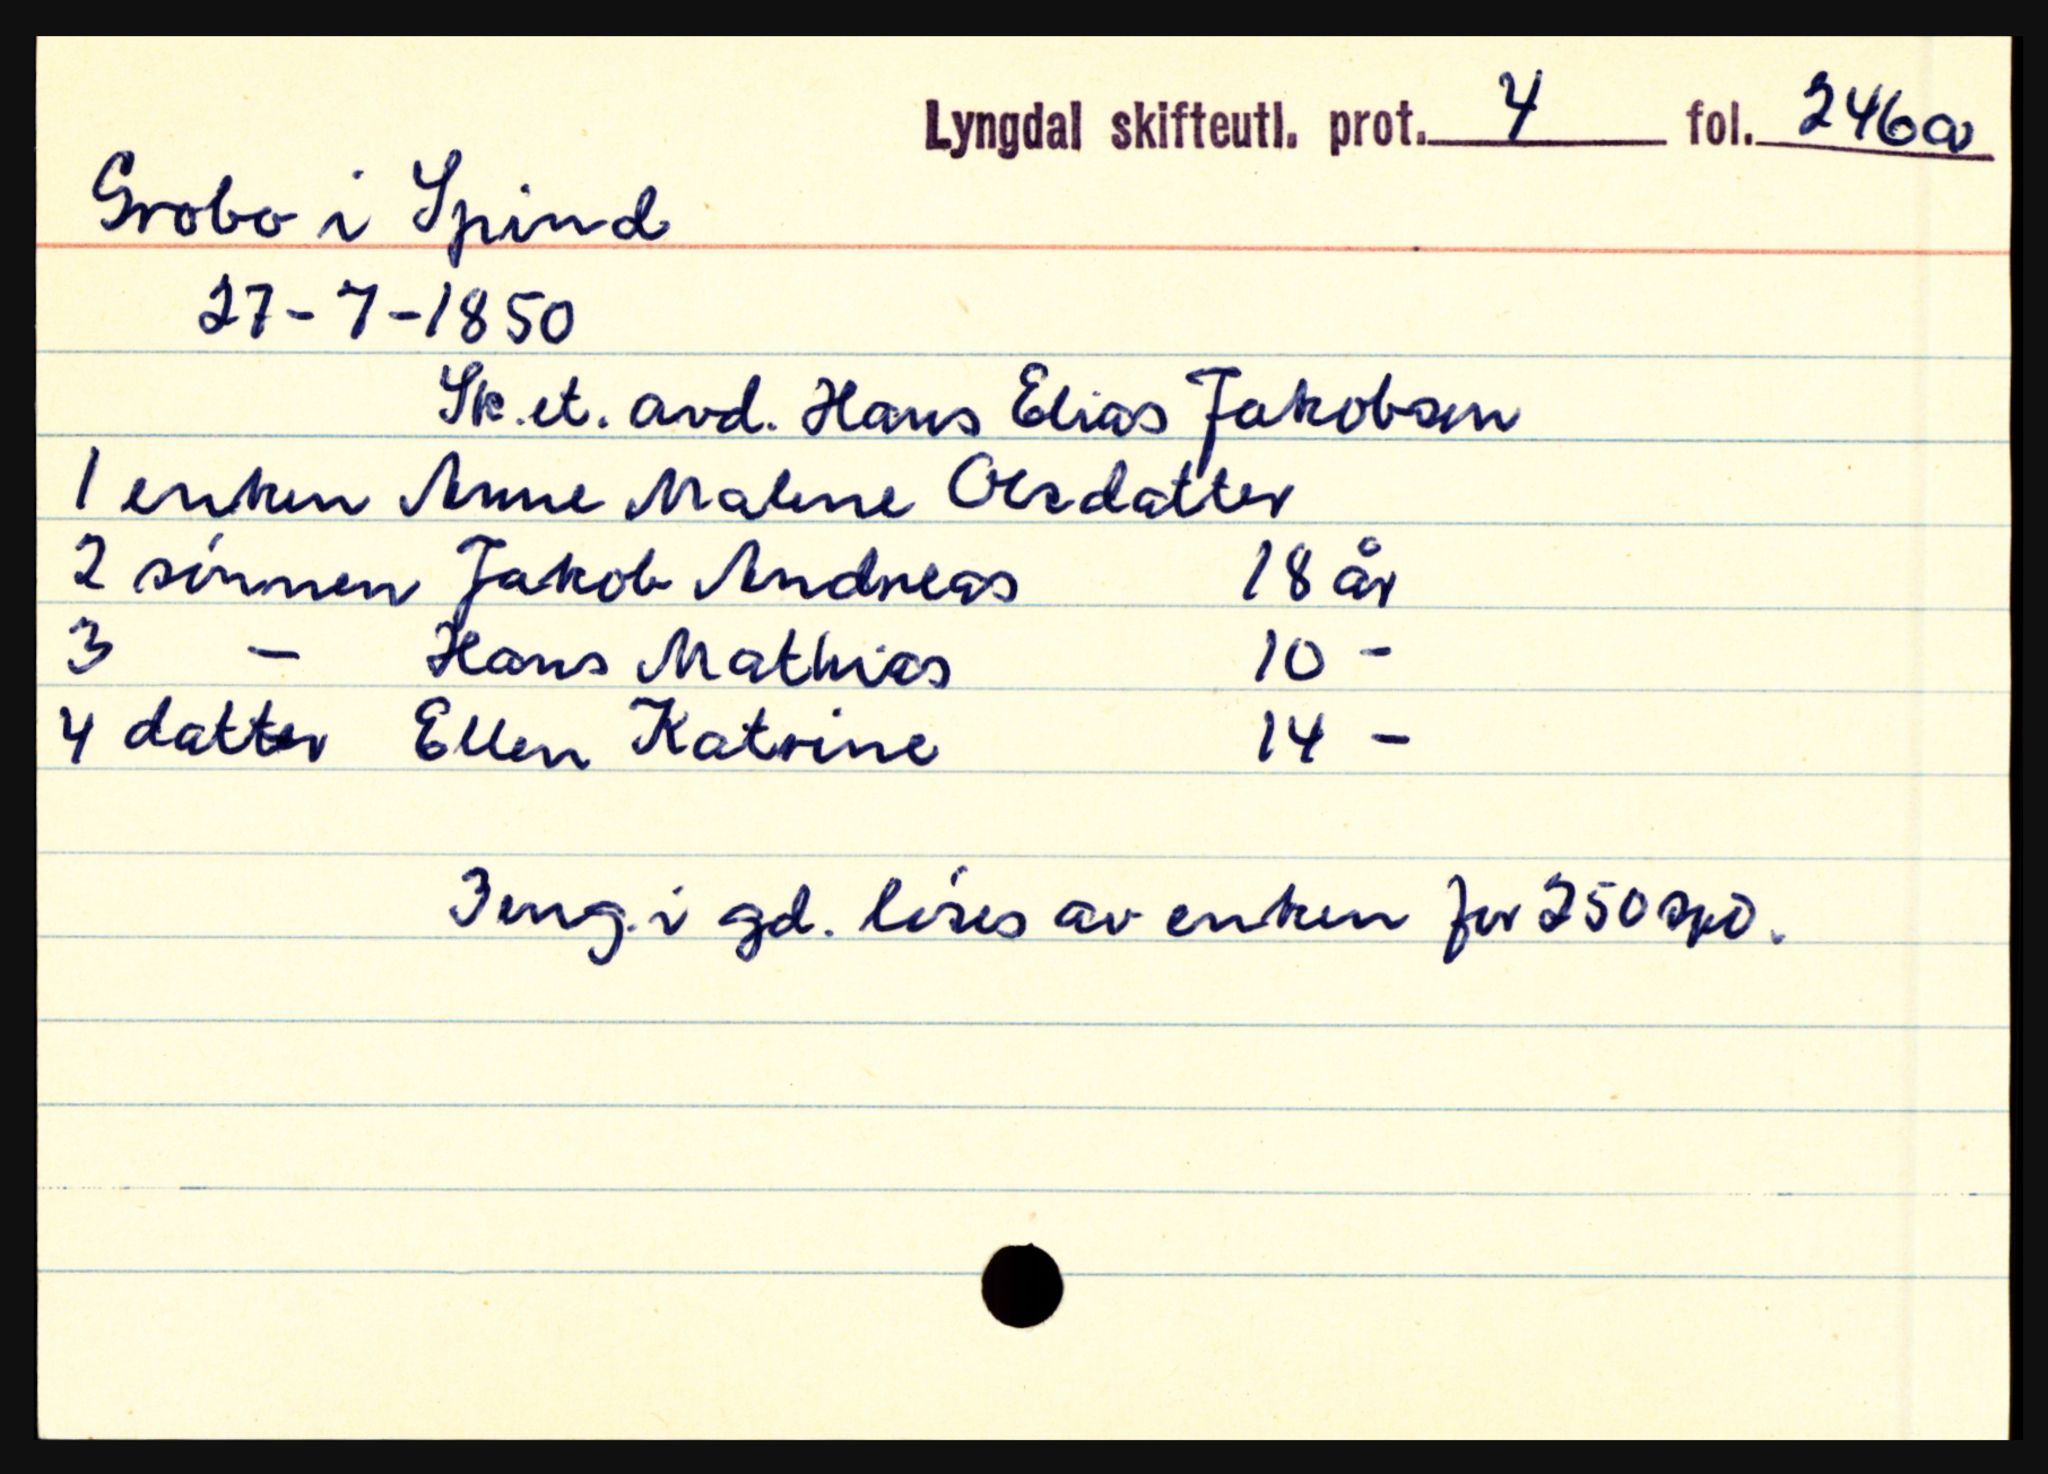 Lyngdal skifteutl. prot. 4 fol. 246a
Grobo i Spind
27-7-1850
Sk. et. avd. Hans Elias Jakobsen
1 enken Anne Malene Olsdatter
2 sónnen Jakob Andreas 18 år
3 - Hans Mathias 10 -
4 datter Ellen Katrine 14 -
3 eng. i gd. lóses av enken for 250 spd.